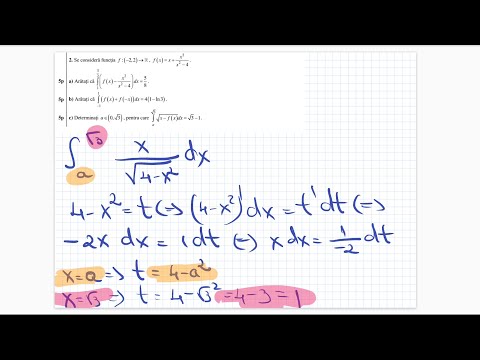 2. Se consideră funcția f:(-2,2)→ℝ, f(x)=x+x²/(x²-4).
5p a) Arătați că ∫(f(x)-x²/(x²-4))dx=
5p b) Arătați că ∫(f(x)+f(-x))dx=4(1-ln3).
5p c) Determinați a∈(0,√3), pentru care ∫√(x-f(x))dx=√3-1.
∫ₐ^√3 x/√(4-x²) dx
4-x²=t (=) (4-x²)'dx=t'dt (=)
-2x dx = 1dt (=) x dx = 1/-2 dt
x=a => t=4-a²
x=√3 => t=4-√3²=4-3=1